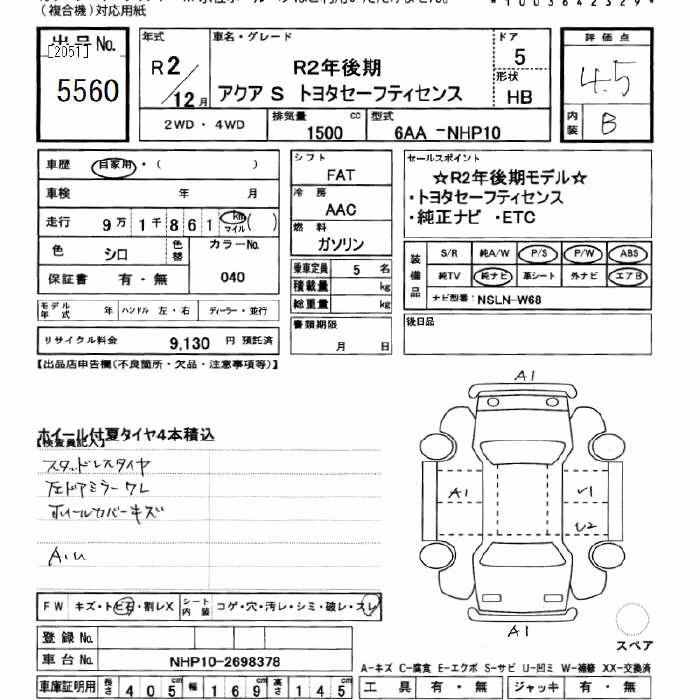 *1003642329*
(複合機)対応用紙
出品No.
[2051]
5560
年式
R2/12月
車名・グレード
R2年後期
アクア S トヨタセーフティセンス
ドア
5
形状
HB
評価点
4.5
内装
B
2WD・4WD
排気量
1500 cc
型式
6AA -NHP10
車歴 自家用・( )
車検 年 月
走行 9万1千861 km マイル ( )
色 シロ 色替 カラーNo. 040
保証書 有・無
モデル年式 年 ハンドル 左・右 ディーラー・並行
リサイクル料金 9,130 円 預託済
シフト
FAT
冷房
AAC
燃料
ガソリン
乗車定員 5 名
積載量 kg
総重量 kg
書類期限
月 日
セールスポイント
☆R2年後期モデル☆
・トヨタセーフティセンス
・純正ナビ ・ETC
装備品
S/R 純A/W P/S P/W ABS
純TV 純ナビ 革シート 外ナビ エアB
ナビ型番: NSLN-W68
後日品
【出品店申告欄(不良箇所・欠品・注意事項等)】
ホイール付夏タイヤ4本積込
【検査員記入】
スタッドレスタイヤ
左ドアミラーワレ
ホイールカバーキズ
A.U
A1
A1
U1
U2
A1
スペア
FW キズ・トビ石・割レX シート内装 コゲ・穴・汚レ・シミ・破レ・スレ
登録No.
車台No. NHP10-2698378
車庫証明用 長さ 405 cm 幅 169 cm 高さ 145 cm
A-キズ C-腐食 E-エクボ S-サビ U-凹ミ W-補修 XX-交換済
工具 有・無 ジャッキ 有・無